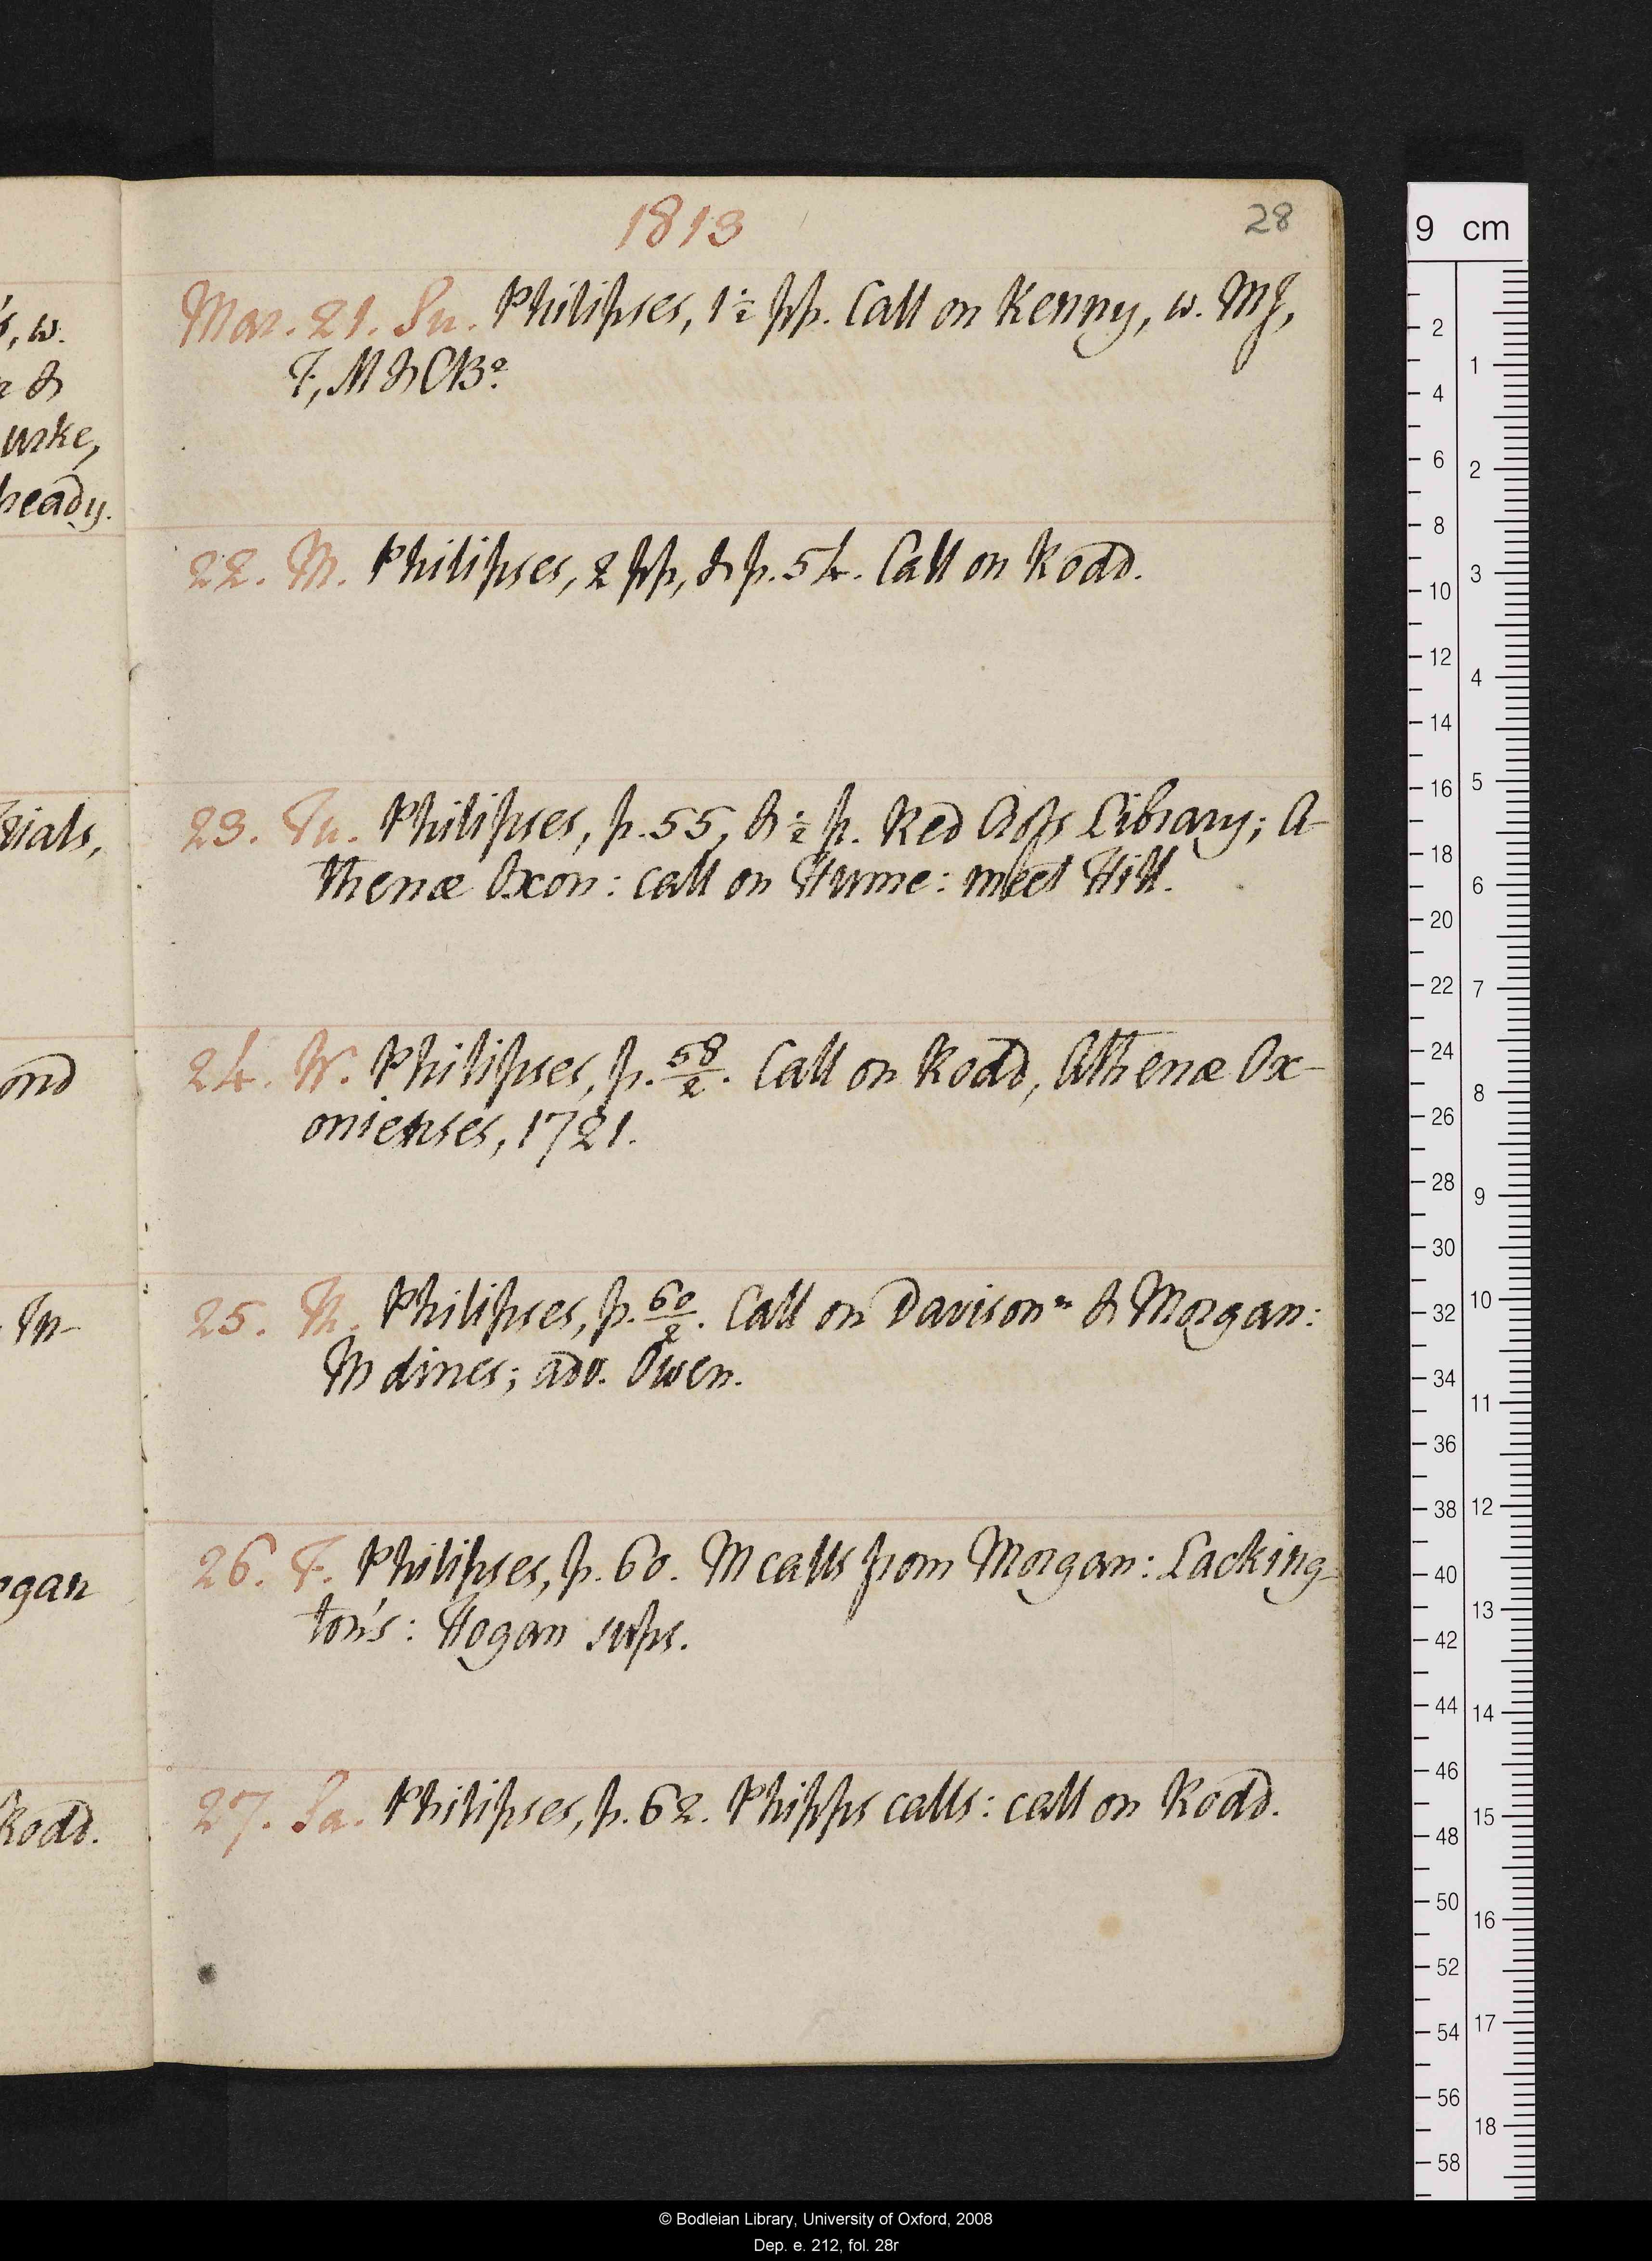 1813
28
Mar. 21. Su. Philipses, 1 1/2 pp. Call on Kenny, w. MJ,
F, M & CBº.
22. M. Philipses, 2 pp, & p. 54. Call on Rodd.
23. Tu. Philipses, p. 55, & 1/2 p. Red Cross Library; A-
thenæ Oxon: call on Hume: meet Hill.
24. W. Philipses, p. 58/2. Call on Rodd, Athenæ Ox-
onienses, 1721.
25. Th. Philipses, p. 60/2. Call on Davison n & Morgan:
M dines; adv. Owen.
26. F. Philipses, p. 60. M calls from Morgan: Lacking-
ton's: Hogan sups.
27. Sa. Philipses, p. 62. Phipps calls: call on Rodd.
, w.
&
urke,
heady.
rials,
ond
In-
ogan
Rodd.
9 cm
2 4 6 8 10 12 14 16 18 20 22 24 26 28 30 32 34 36 38 40 42 44 46 48 50 52 54 56 58
1 2 3 4 5 6 7 8 9 10 11 12 13 14 15 16 17 18
© Bodleian Library, University of Oxford, 2008
Dep. e. 212, fol. 28r